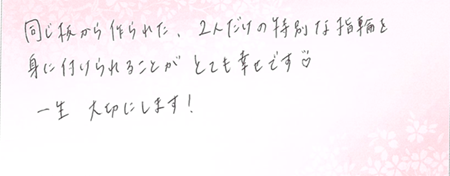 同じ板から作られた、2人だけの特別な指輪を
身に付けられることが とても幸せです♡
一生 大切にします!